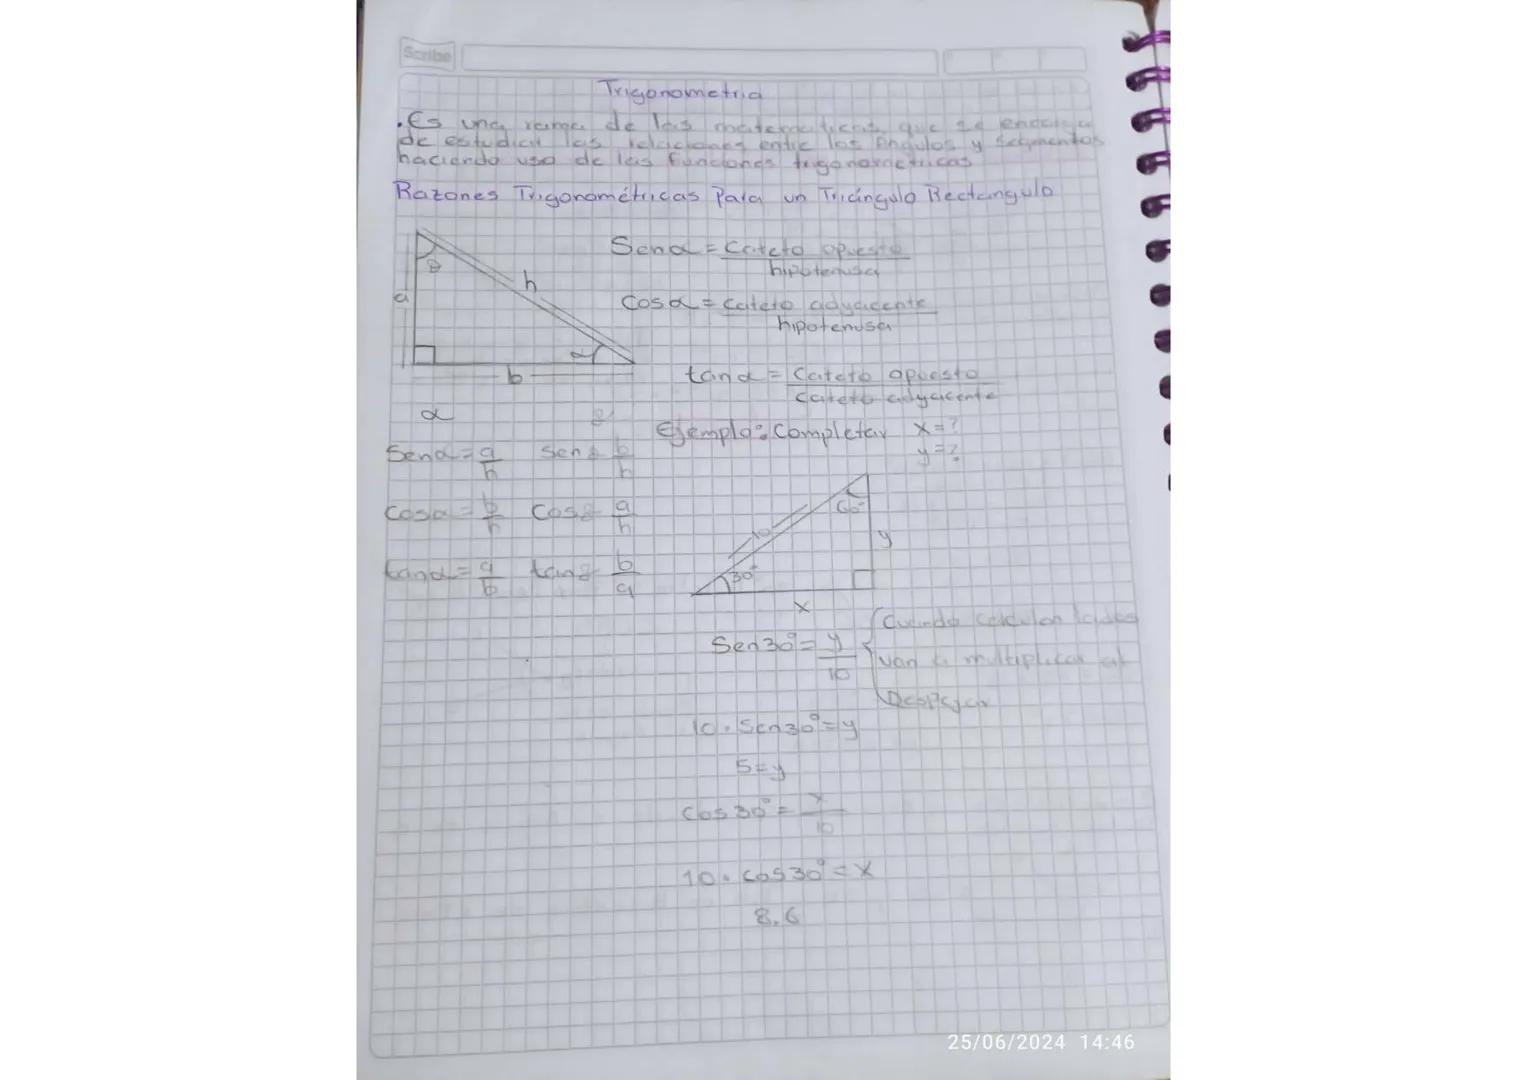 Scribe
Trigonometria
• Es una rama de las matematicas que se encarga
de estudiar las relaciones entre los Angulos y segmentos
haciendo uso de las funciones trigonometricas
Razones Trigonométricas Para un Triángulo Rectangulo
Sen α = Cateto opuesto
hipotenusa
θ
h
a
Cos α = Cateto adyacente
hipotenusa
α
b
tan α = Cateto opuesto
Cateto adyacente
α
θ
Ejemplo: Completar x = ?
y = ?
Sen α = a/h Sen θ b/h
Cos α = b/h Cos θ a/h
tan α = a/b tan θ b/a
60°
10
y
30°
x
Sen 30° = y/10
Cuando calculan lados
van a multiplicar al
Despejar
10 · Sen 30° = y
5 = y
Cos 30° = x/10
10 · Cos 30° = x
8.6
25/06/2024 14:46